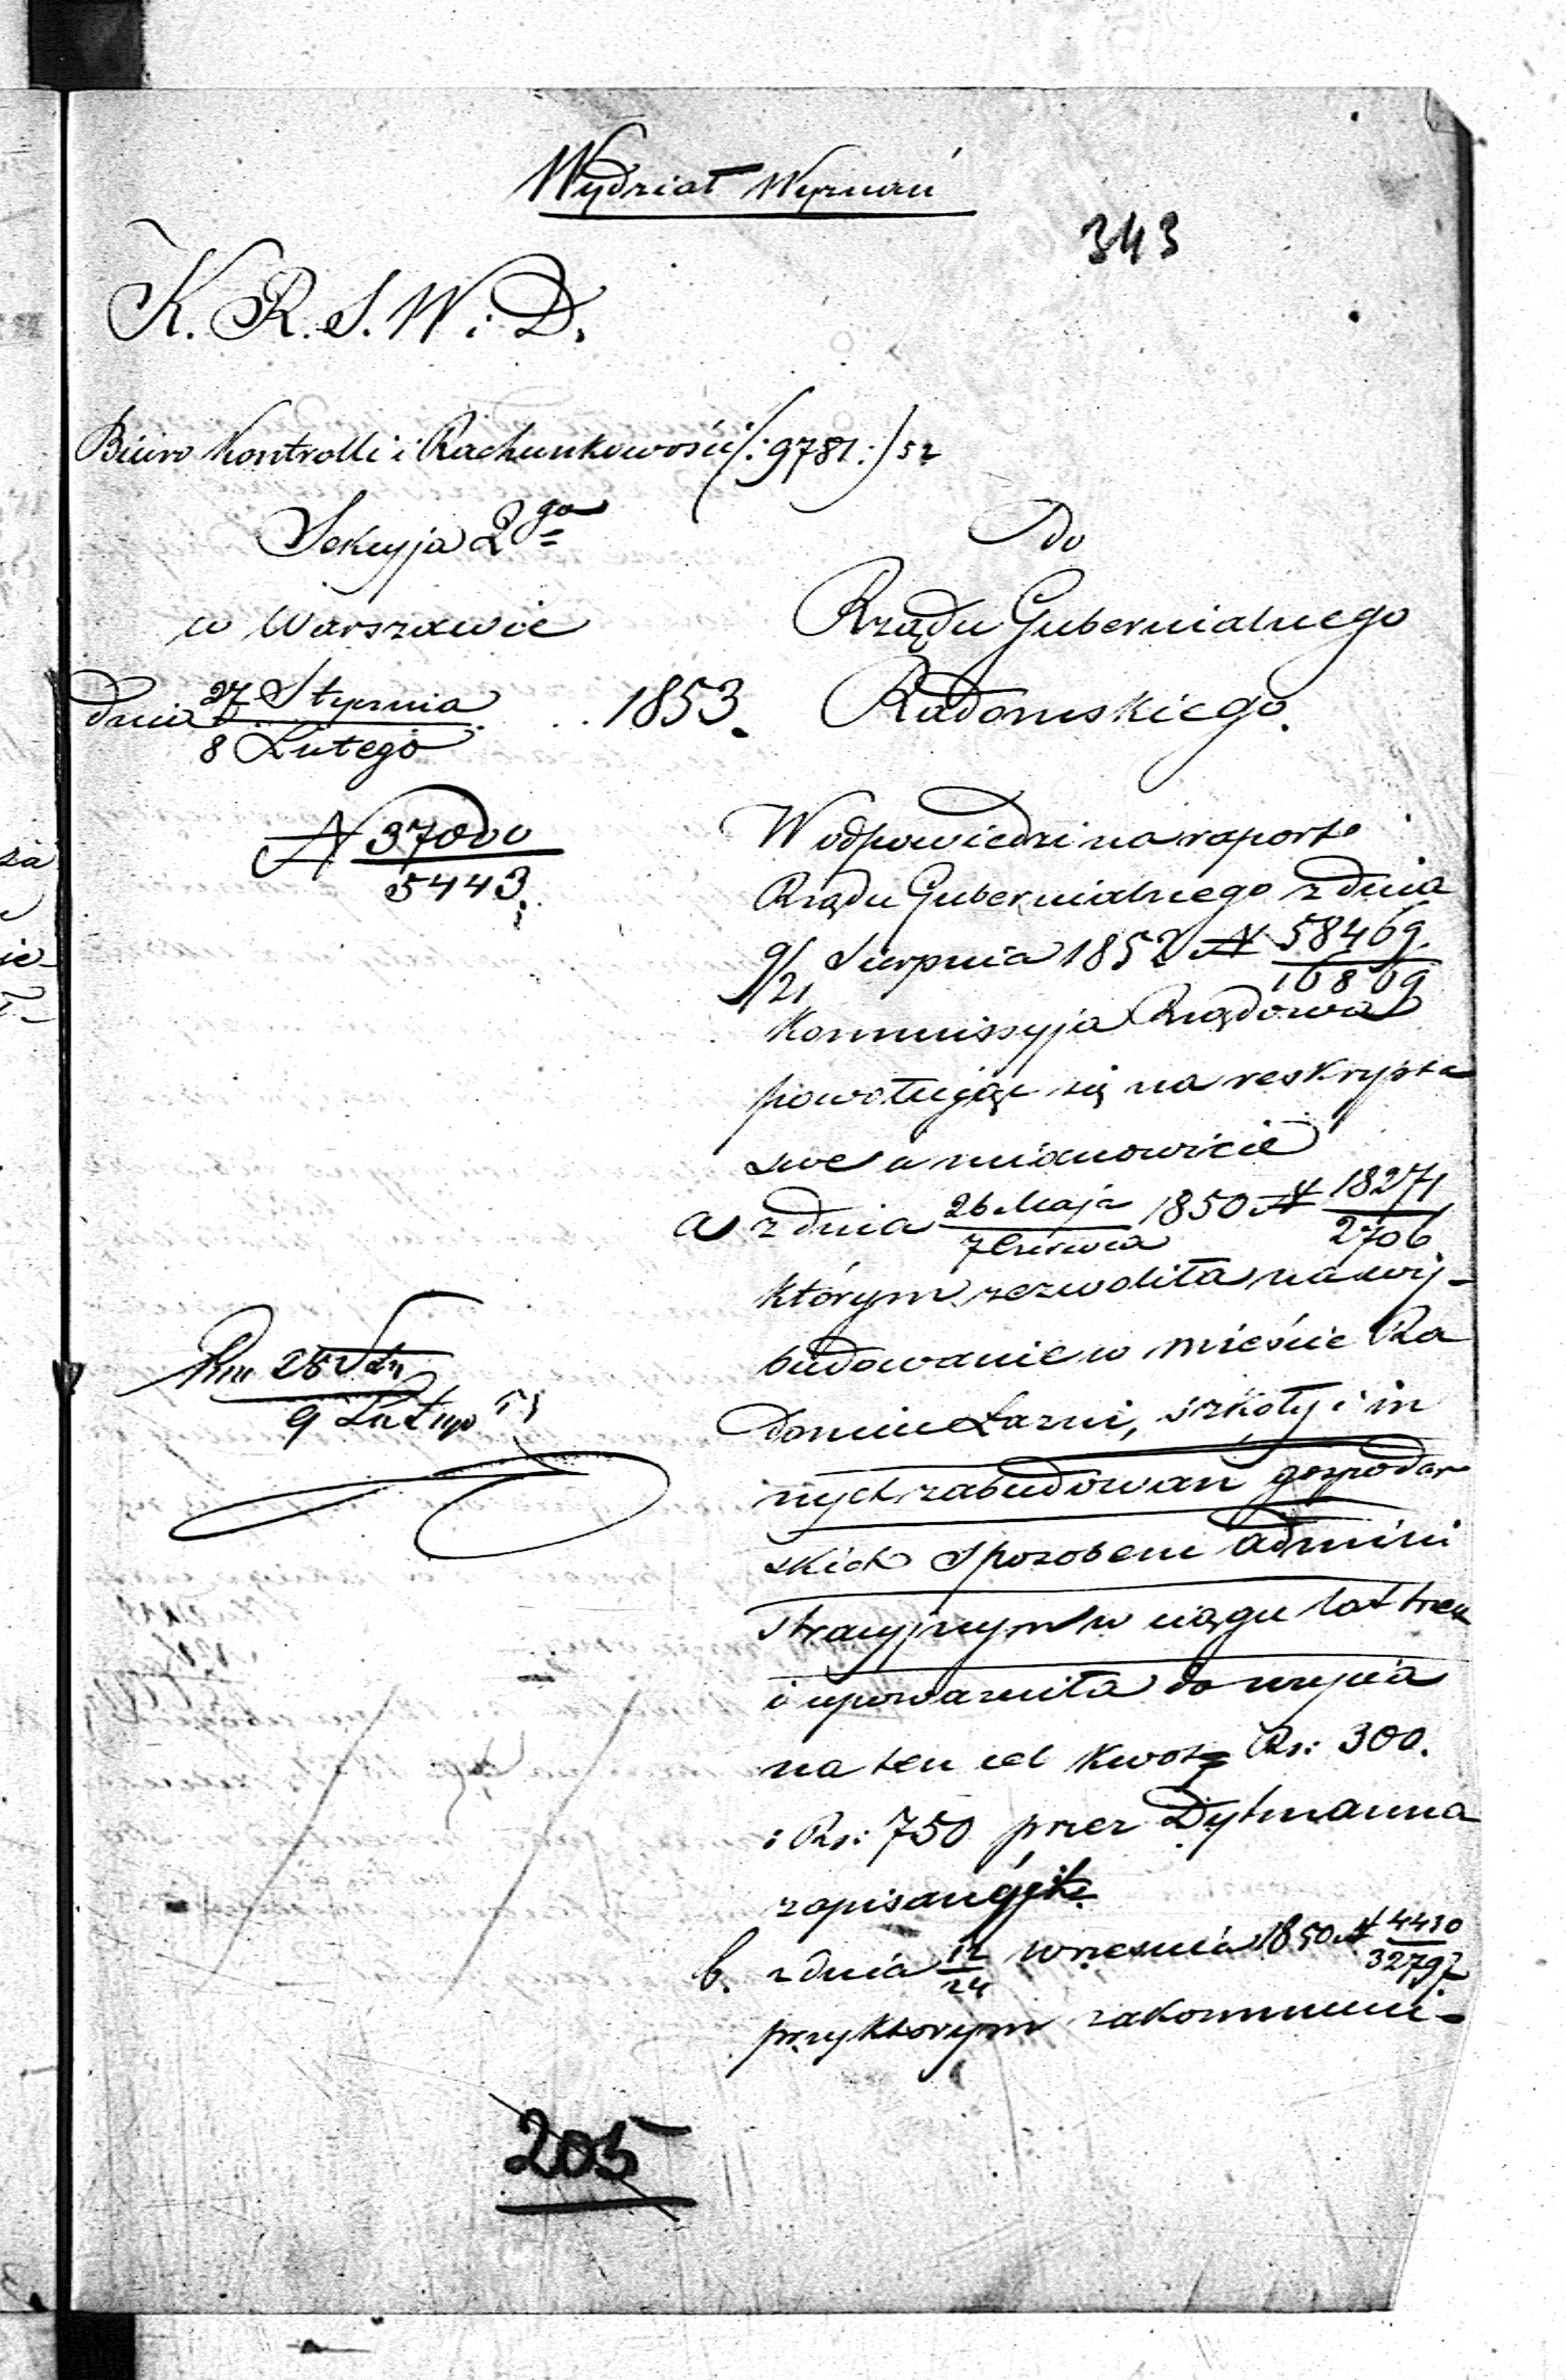 Wydział Wyznań
343
K. R. S. W. i D.
Biuro Kontrolli i Rachunkowości (:9781:) 52
Sekcyja 2ga
w Warszawie
dnia 27 Stycznia / 8 Lutego 1853.
N 37000 / 5443.
Do
Rządu Gubernialnego
Radomskiego.
W odpowiedzi na raport
Rządu Gubernialnego z dnia
9/21 Sierpnia 1852 N 58469 / 16809
Kommissyja Rządowa
powołując się na reskrypta
swe a mianowicie
a z dnia 26 Maja / 7 Czerwca 1850 N 18271 / 2706
którym zezwoliła na wy-
budowanie w mieście Ra
domiu Łazni, szkoły i in
nych zabudowań gospodar
skich sposobem admini
stracyjnym w ciągu lat trzech
i upoważniła do użycia
na ten cel kwotę Rs: 300.
i Rs: 750 przez Dytmanna
zapisanéj
b. z dnia 12/24 września 1850 N 4430 / 32797
przy którym zakommuni-
9 Lutego
205